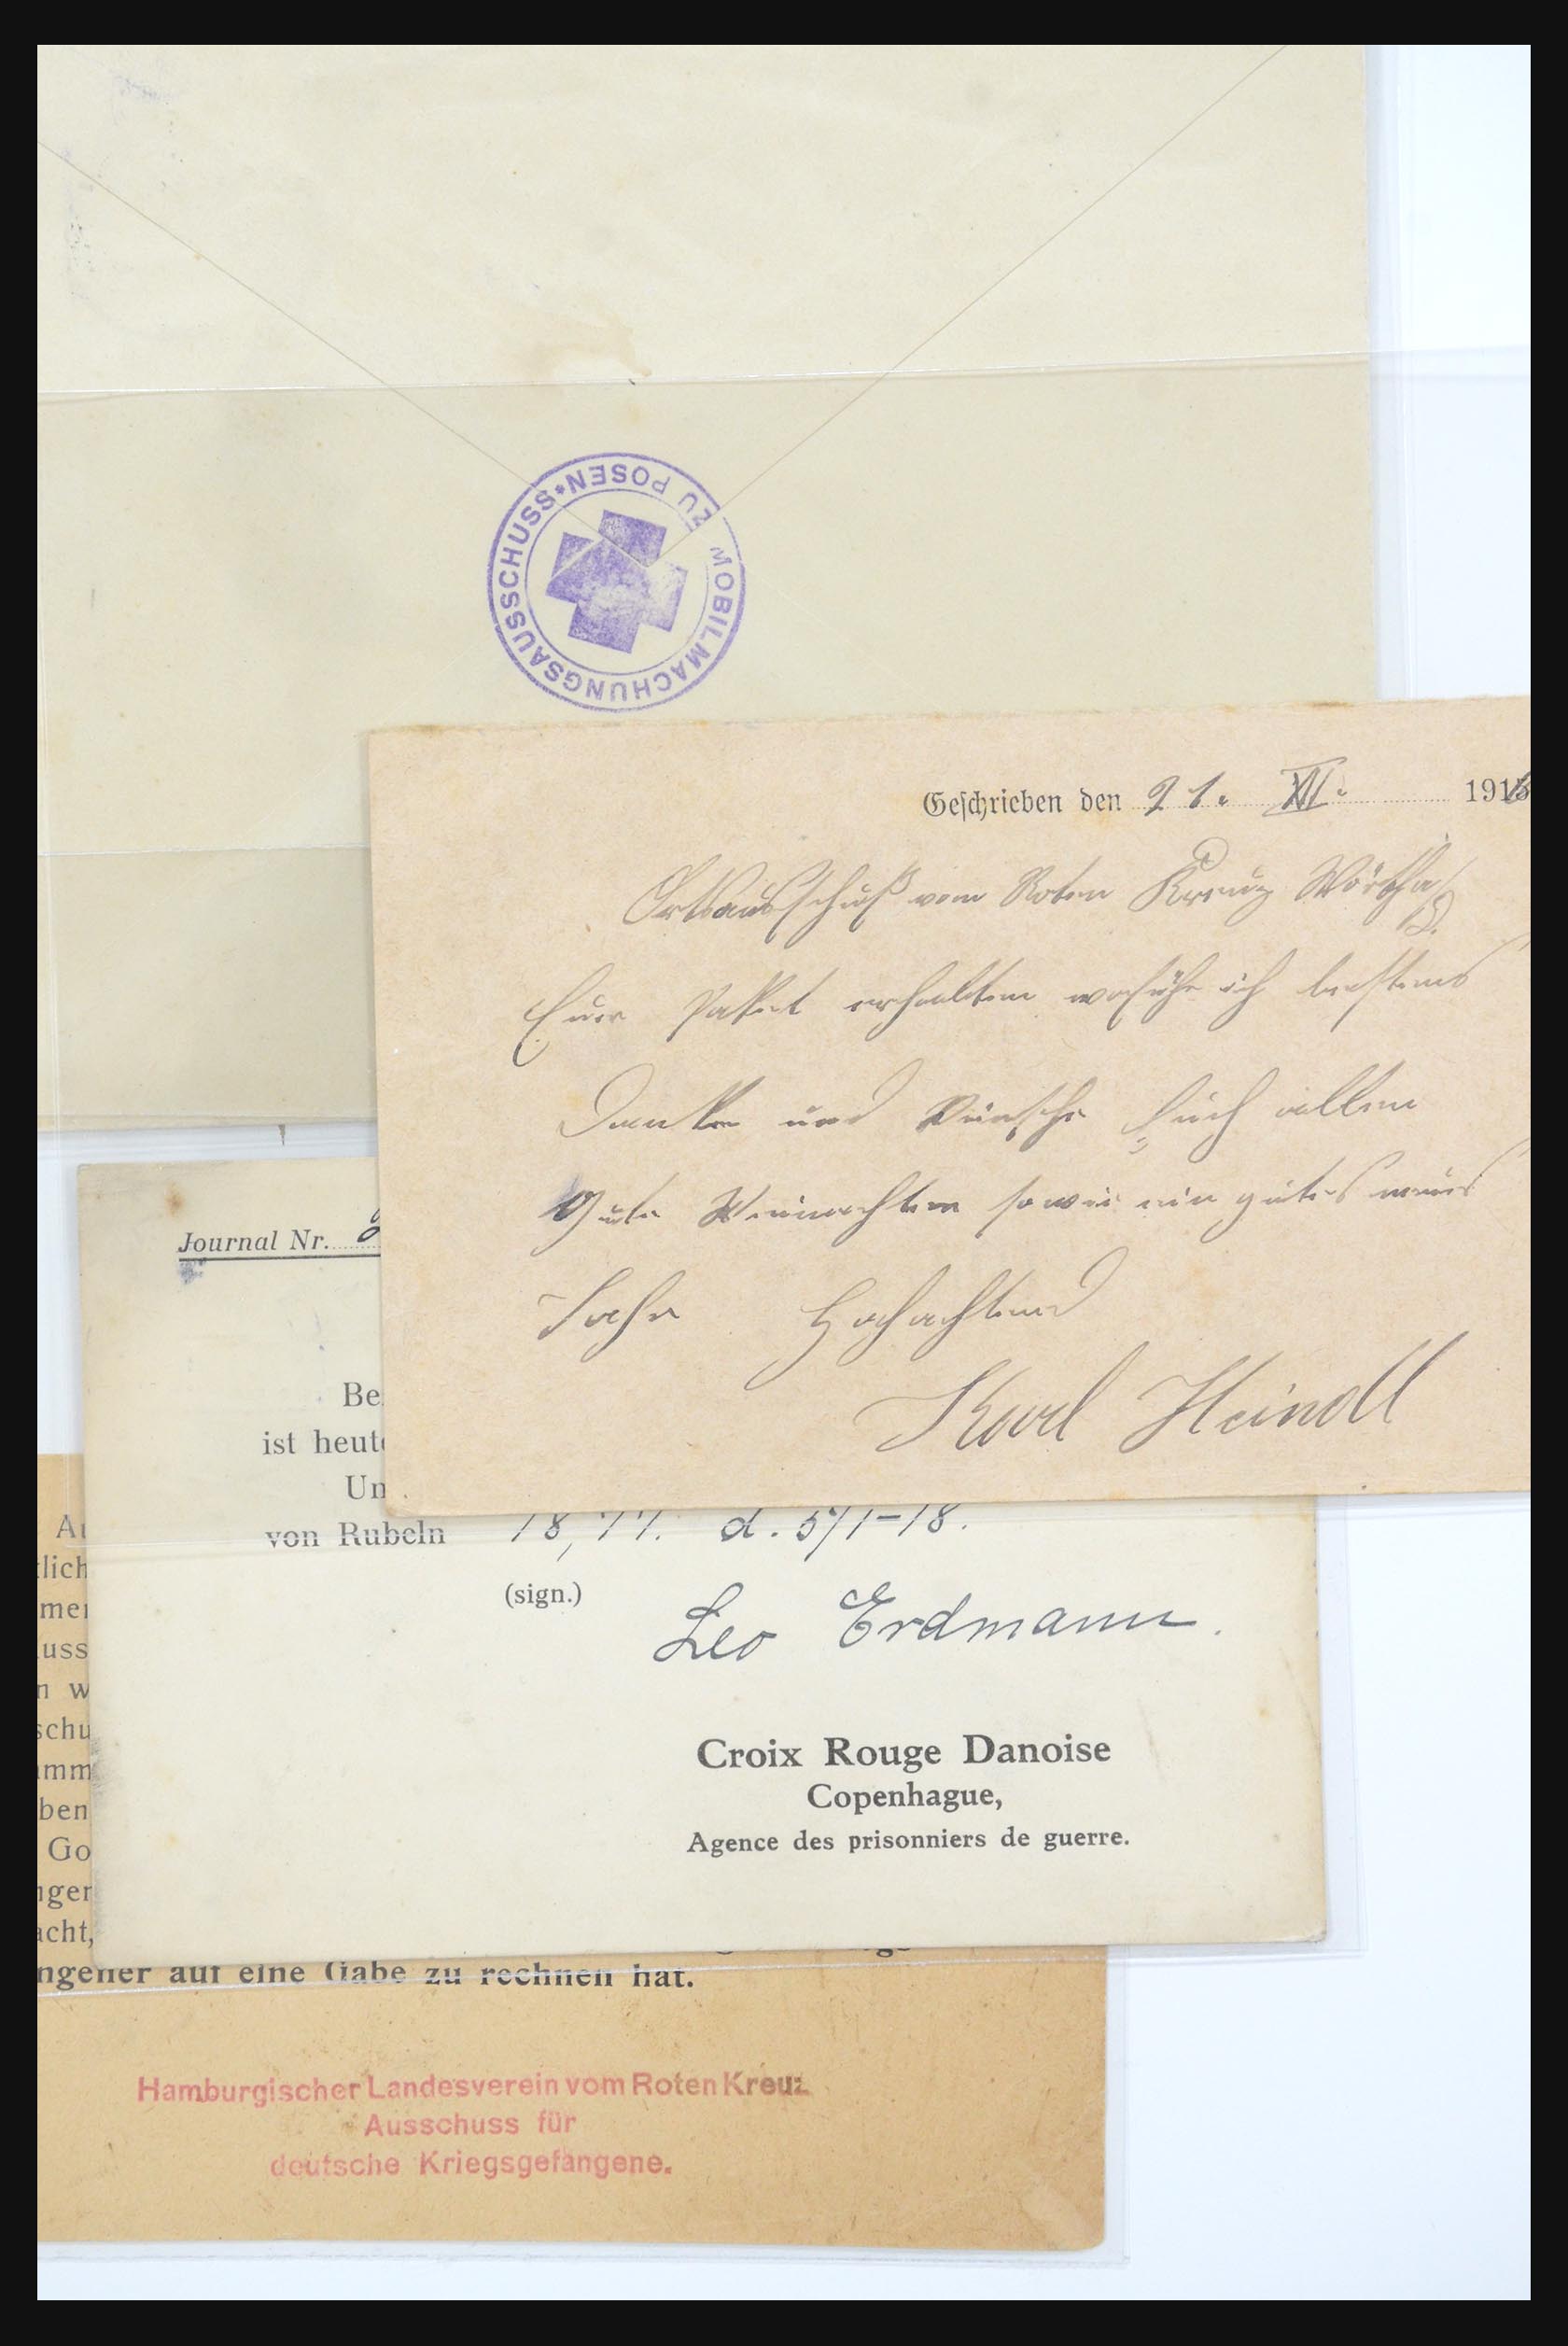 MOBILMACHUNGSAUSSCHUSS * POSEN
ZU
Geschrieben den 21. XII. 1916
Ortsausschuß vom Roten Kreuz Wörth a/D.
Euer Paket erhalten woführ ich bestens
Danke und Wünsche Euch allen
Gute Weinachten sowie ein gutes neues
Jahr Hochachtend
Karl Heindl
Journal Nr.
Be
ist heute
Un
von Rubeln 18,77. d. 5/1-18.
(sign.)
Leo Erdmann.
Croix Rouge Danoise
Copenhague,
Agence des prisonniers de guerre.
lich
mer
uss
n w
schu
mm
ben
Go
nger
acht,
ngener auf eine Gabe zu rechnen hat.
Hamburgischer Landesverein vom Roten Kreuz
Ausschuss für
deutsche Kriegsgefangene.